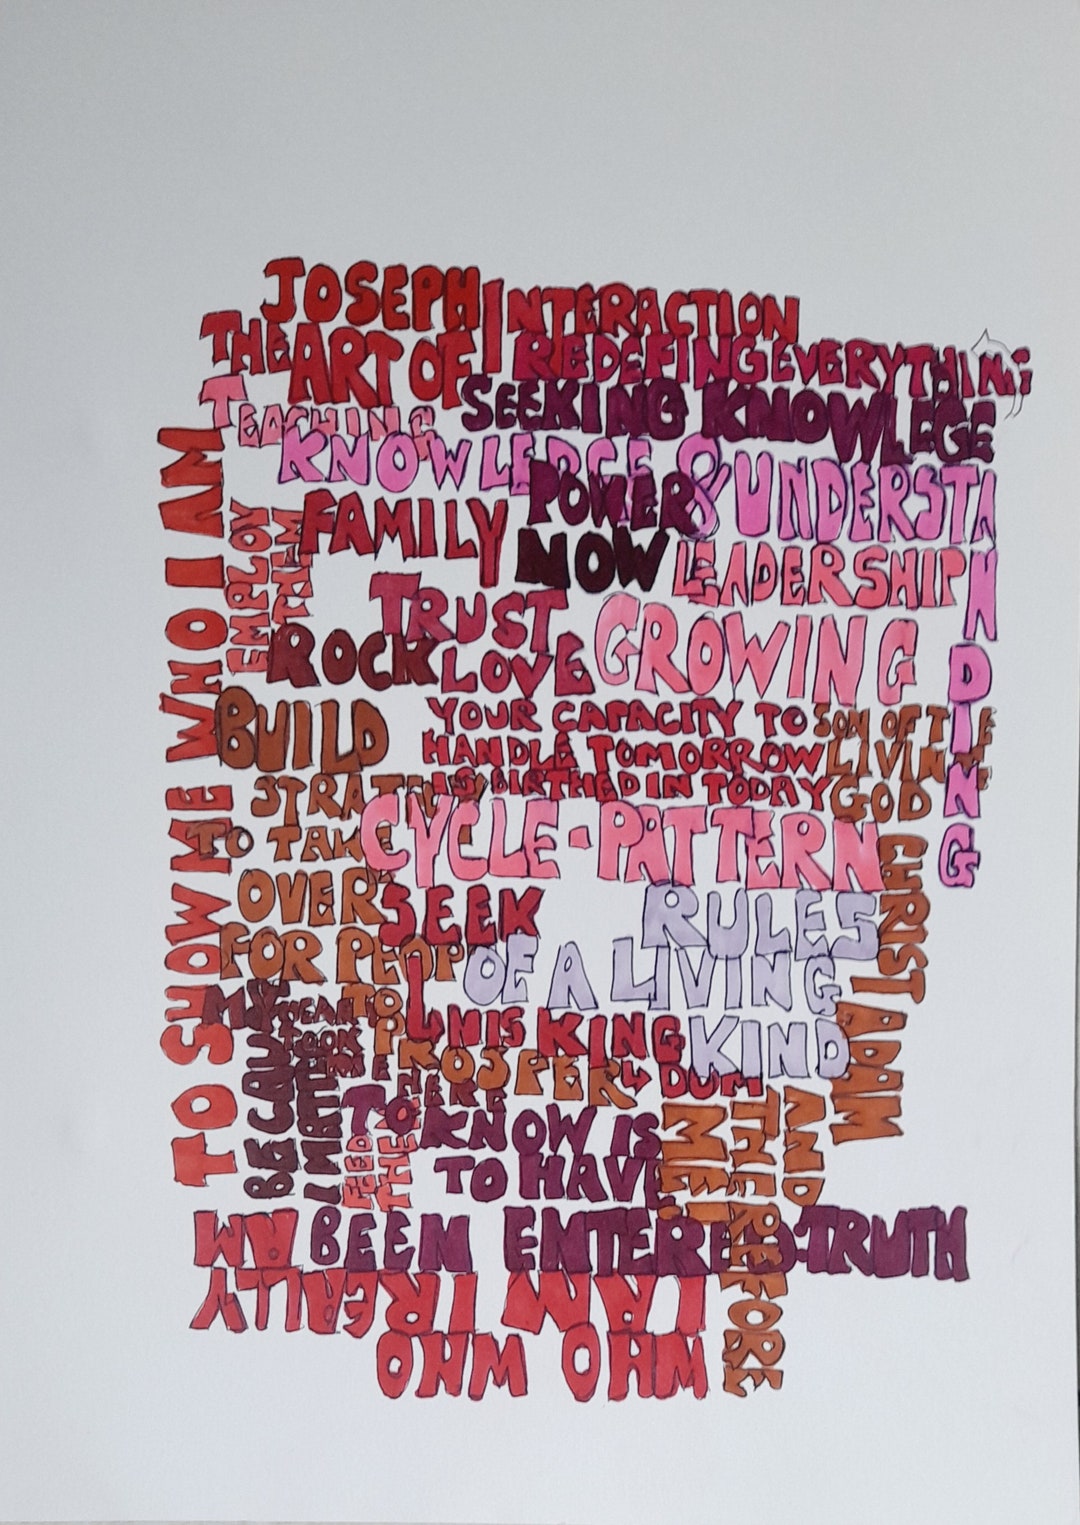 JOSEPH
INTERACTION
THE ART OF
REDEFING EVERYTHING
TEACHING
SEEKING KNOWLEGE
KNOWLEDGE & UNDERSTANDING
POWER
FAMILY
NOW
LEADERSHIP
EMPLOY
THEM
TRUST
GROWING
ROCK
LOVE
BUILD
YOUR CAPACITY TO
HANDLE TOMORROW
IS BIRTHED IN TODAY
SON OF THE
LIVING
GOD
CHRIST
ADAM
AND
THEREFORE
ME
CYCLE-PATTERN
TO TAKE
OVER
FOR PEOP
TO
PROSPER
SEEK
RULES
OF A LIVING
KIND
KING
DUM
MY
TOOK
ME HERE
BECAUS
I MATTER
FEED
THEM
TO KNOW IS
TO HAVE
BEEN ENTERED:TRUTH
TO SHOW ME WHO I AM
WHO WHO
I AM I REALLY
AM